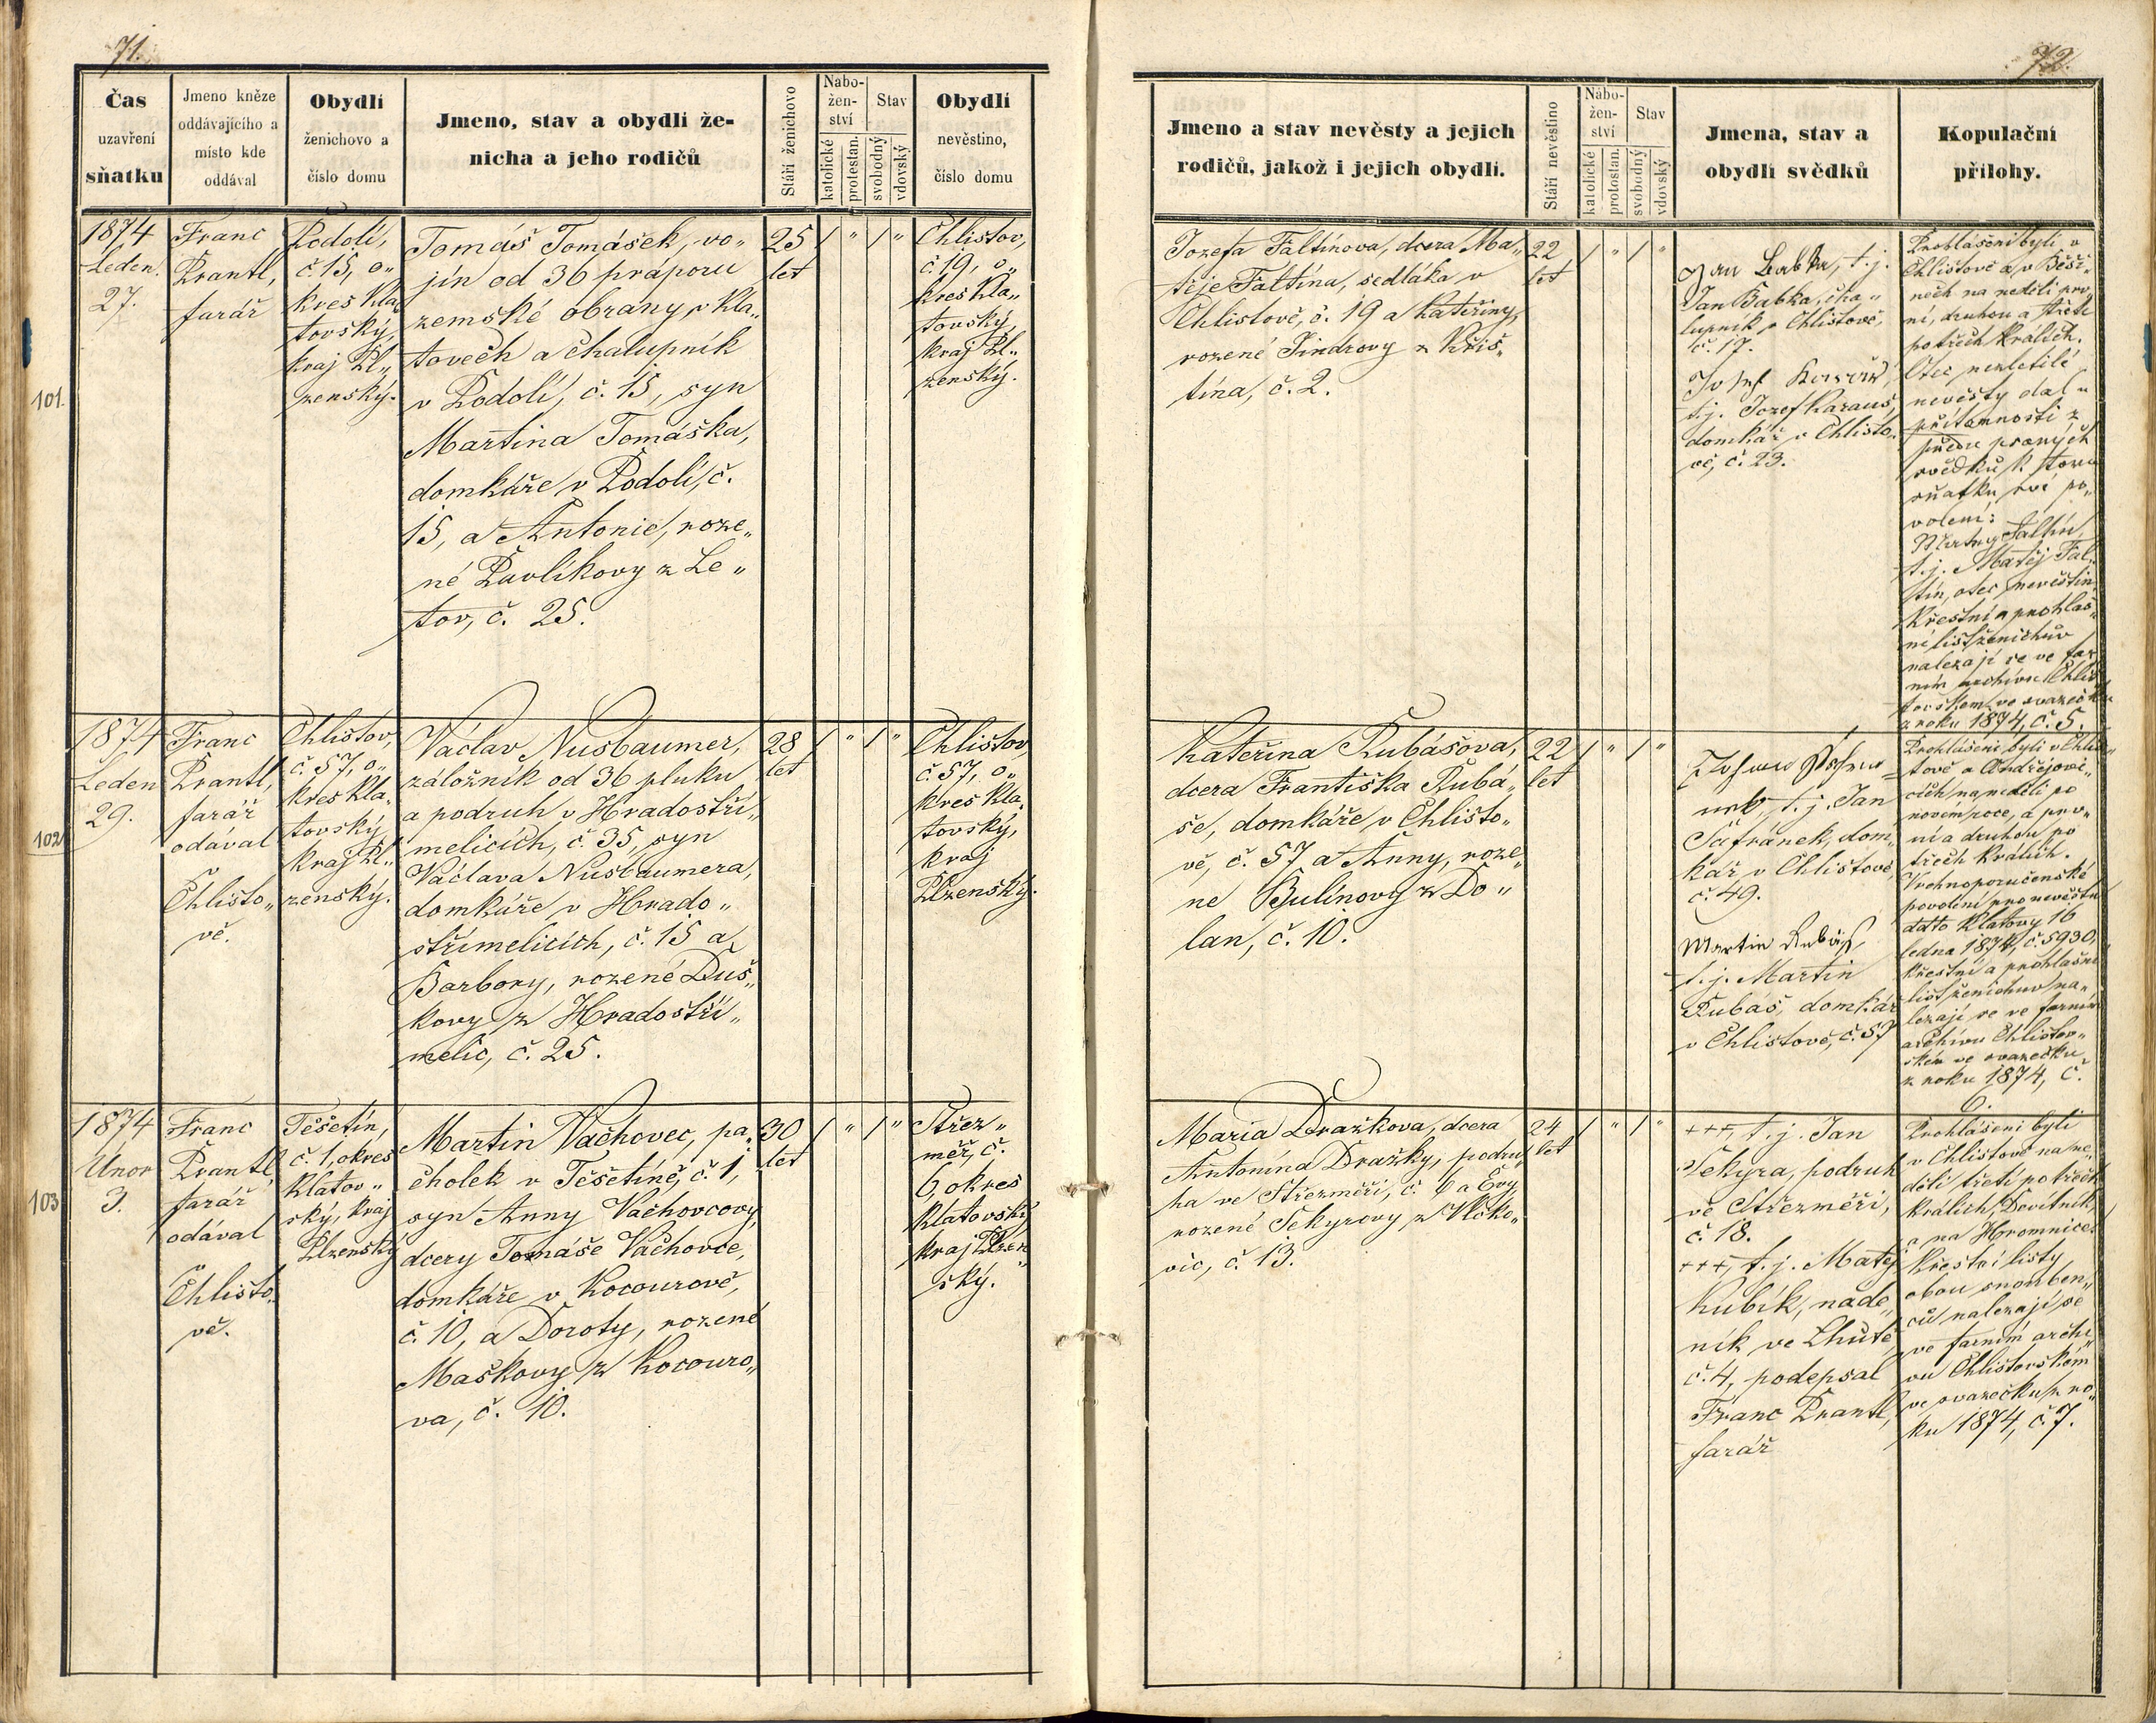 71.
Čas
uzavření
sňatku
Jmeno kněze
oddávajícího a
místo kde
oddával
Obydlí
ženichovo a
číslo domu
Jmeno, stav a obydlí že-
nicha a jeho rodičů
Stáří ženichovo
Nabo-
žen-
ství
katolické
protestan.
Stav
svobodný
vdovský
Obydlí
nevěstino,
číslo domu
101.
1874
Leden.
27.
Franc
Prantl,
farář
Podolí,
č. 15, o„
kres Kla„
tovský,
kraj Pl„
zenský.
Tomáš Tomášek, vo„
jín od 36 práporu
zemské obrany v Kla„
tovech a chalupník
v Podolí, č. 15, syn
Martina Tomáška,
domkáře v Podolí, č.
15, a Antonie, roze„
né Pavlíkovy z Le„
tov, č. 25.
25
let
/ " / "
Chlistov,
č. 19, o„
kres Kla„
tovský,
kraj Pl„
zenský.
102
1874
Leden
29.
Franc
Prantl,
farář
odával
v
Chlisto„
vě.
Chlistov,
č. 57, o„
kres Kla„
tovský,
kraj Pl„
zenský.
Václav Nusbaumer,
záložník od 36 pluku
a podruh v Hradostři„
melicích, č. 35, syn
Václava Nusbaumera,
domkáře v Hrado„
střimelicích, č. 15 a
Barbory, rozené Duš„
kovy z Hradostři„
melic, č. 25.
28
let
/ " / "
Chlistov,
č. 57, o„
kres Kla„
tovský,
kraj
Plzenský.
103
1874
Únor
3.
Franc
Prantl,
farář
odával
v
Chlisto„
vě.
Těšetín,
č. 1, okres
Klatov„
ský, kraj
Plzenský
Martin Vachovec, pa„
cholek v Těšetíně, č. 1,
syn Anny Vachovcovy,
dcery Tomáše Vachovce,
domkáře v Kocourově,
č. 10, a Doroty, rozené
Maškovy z Kocouro„
va, č. 10.
30
let
/ " / "
Střez„
měř, č.
6, okres
Klatovský
kraj Plzen„
ský.
72.
Jmeno a stav nevěsty a jejich
rodičů, jakož i jejich obydlí.
Stáří nevěstino
Nábo-
žen-
ství
katolické
protestan.
Stav
svobodný
vdovský
Jmena, stav a
obydlí svědků
Kopulační
přílohy.
Jozefa Faltínova, dcera Ma„
těje Faltína, sedláka v
Chlistově, č. 19 a Kateřiny,
rozené Jindrovy z Křis„
tína, č. 2.
22
let
/ " / "
Jan Babka, t. j.
Jan Babka, cha„
lupník v Chlistově,
č. 17.
t. j. Jozef Karaus,
domkář v Chlisto„
vě, č. 23.
Prohlášeni byli v
Chlistově a v Běši„
nech na neděli prv„
ní, druhou a třetí
po třech králích.
Otec nezletilé
nevěsty dal u
přítomnosti z
předu psaných
svědků k tomu
sňatku své po„
volení:
t. j. Matěj Fal„
tín, otec nevěstin.
Křestní a prohlaš„
ní list ženichův
nalezají se ve far„
ním archivu Chlis„
tovském ve svazečku
z roku 1874, č. 5.
Kateřina Kubášova,
dcera Františka Kubá„
še, domkáře v Chlisto„
vě, č. 57 a Anny, roze„
né Bulínovy z Do„
lan, č. 10.
22
let
/ " / "
t. j. Jan
Šafránek, dom„
kář v Chlistově,
č. 49.
Martin Kubáš,
t. j. Martin
Kubáš, domkář
v Chlistově, č. 57
Prohlášeni byli v Chlis„
tově a Ondřejovi„
cích na neděli po
novém roce, a prv„
ní a druhou po
třech králích.
Vrchnoporučenské
povolení pro nevěstu
dato Klatovy 16
ledna 1874, č. 5930,
křestní a prohlašní
list ženichův na„
lezají se ve farním
archivu Chlistov„
ském ve svazečku
z roku 1874, č.
6.
Maria Dražkova, dcera
Antonína Dražky, podru„
ha ve Střezměři, č. 6 a Evy,
rozené Sekyrovy z Vlčko„
vic, č. 13.
24
let
/ " / "
+++, t. j. Jan
Sekyra, podruh
ve Střezměři,
č. 18.
+++, t. j. Matěj
Kubík, náde„
ník ve Lhůtě,
č. 4, podepsal
Franc Prantl,
farář
Prohlášeni byli
v Chlistově na ne„
děli třetí po třech
králích, Devítník,
a na Hromnice.
Křestní listy
obou snouben„
ců nalezají se
ve farním archi„
vu Chlistovském
ve svazečku z ro„
ku 1874, č. 7.